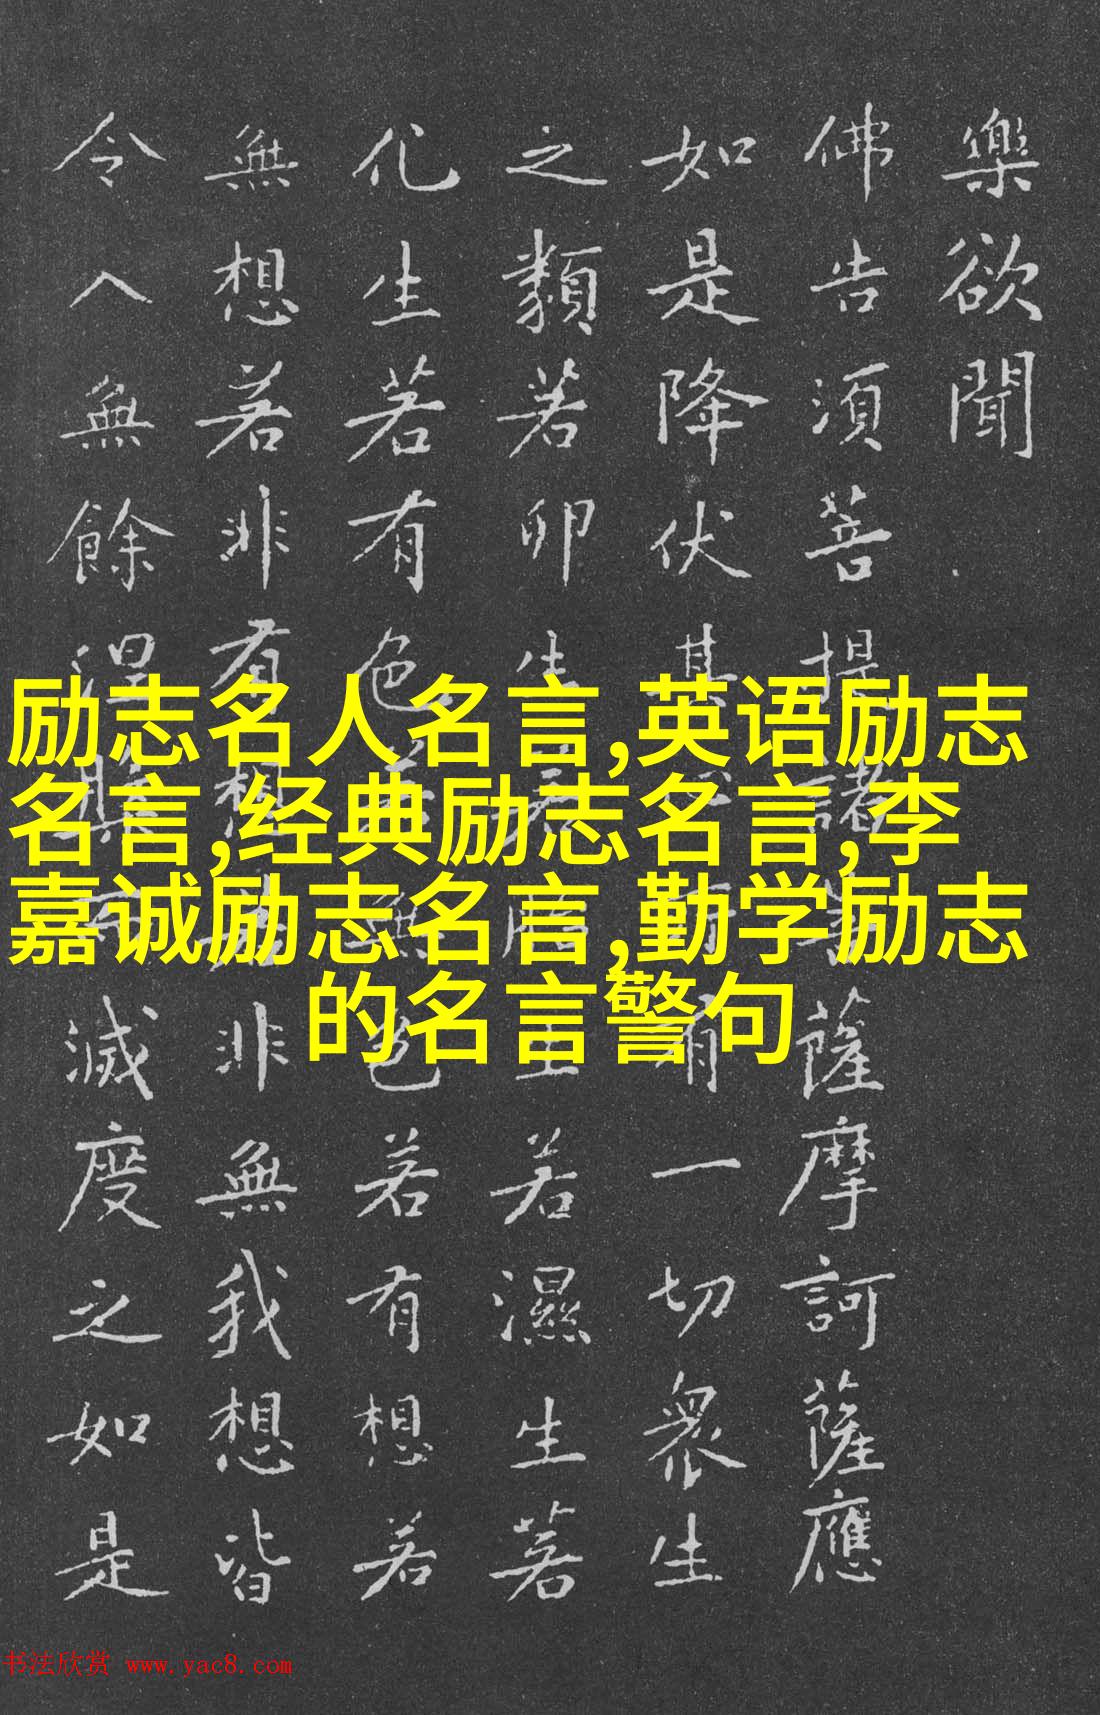 樂欲聞
佛告須菩提諸菩薩摩訶薩應
如是降伏其心所有一切眾生
之類若卵生若胎生若濕生若
化生若有色若無色若有想若
無想若非有想若非無我想皆
令入無餘涅槃而滅度之如是
励志名人名言,英语励志
名言,经典励志名言,李
嘉诚励志名言,勤学励志
的名言警句
书法欣赏 www.yac8.com